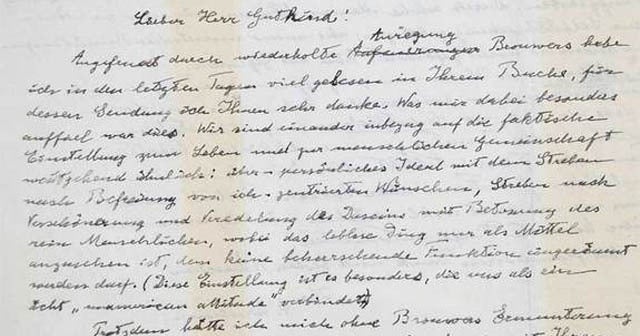 Lieber Herr Gutkind!
Anregung
Angefeuert durch wiederholte Brouwers habe
ich in den letzten Tagen viel gelesen in Ihrem Buche, für
dessen Sendung ich Ihnen sehr danke. Was mir dabei besonders
auffiel war dies. Wir sind einander inbezug auf die faktische
Einstellung zum Leben und zur menschlichen Gemeinschaft
weitgehend ähnlich: über-persönliches Ideal mit dem Streben
nach Befreiung von ich-zentrierten Wünschen, Streben nach
Verschönerung und Veredelung des Daseins mit Betonung des
rein Menschlichen, wobei das leblose Ding nur als Mittel
anzusehen ist, dem keine beherrschende Funktion eingeräumt
werden darf. (Diese Einstellung ist es besonders, die uns als ein
ächt „unamerican attitude" verbindet)
Trotzdem hätte ich mich ohne Brouwers Ermunterung